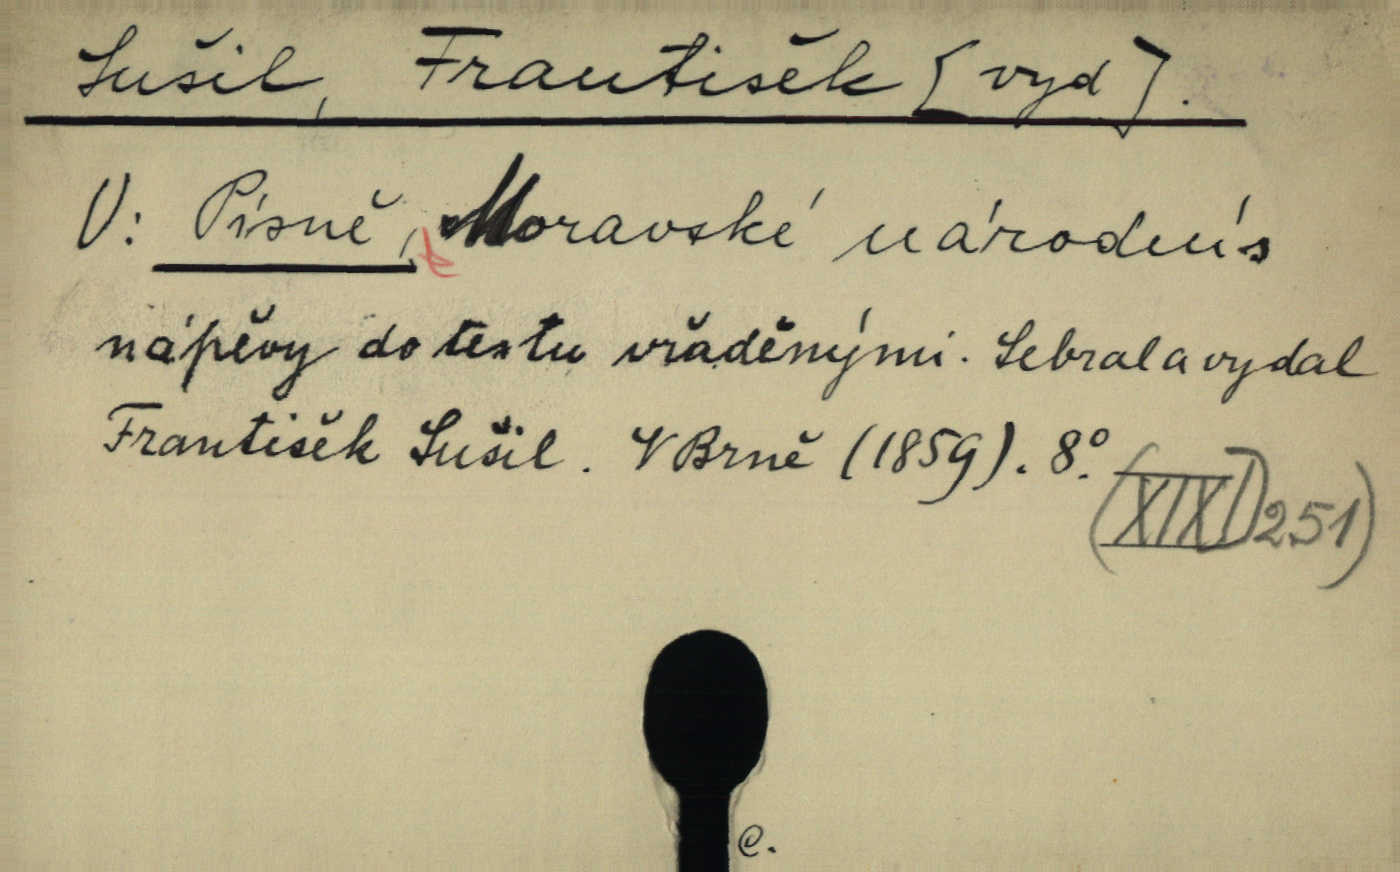 Sušil, František [vyd].
V: Písně, Moravské národní s
nápěvy do textu vřaděnými. Sebral a vydal
František Sušil. V Brně (1859). 8°.
(XIXD251)
C.